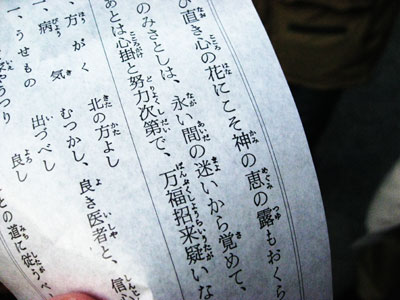 直き心の花にこそ神の恵の露もおくら
のみさとしは、永い間の迷いから覚めて、
あとは心掛と努力次第で、万福招来疑いな
一、方がく 北の方よし
一、病気 むつかし、良き医者と、信心
一、うせもの 出づべし
うつり 良し
との道に従うべ